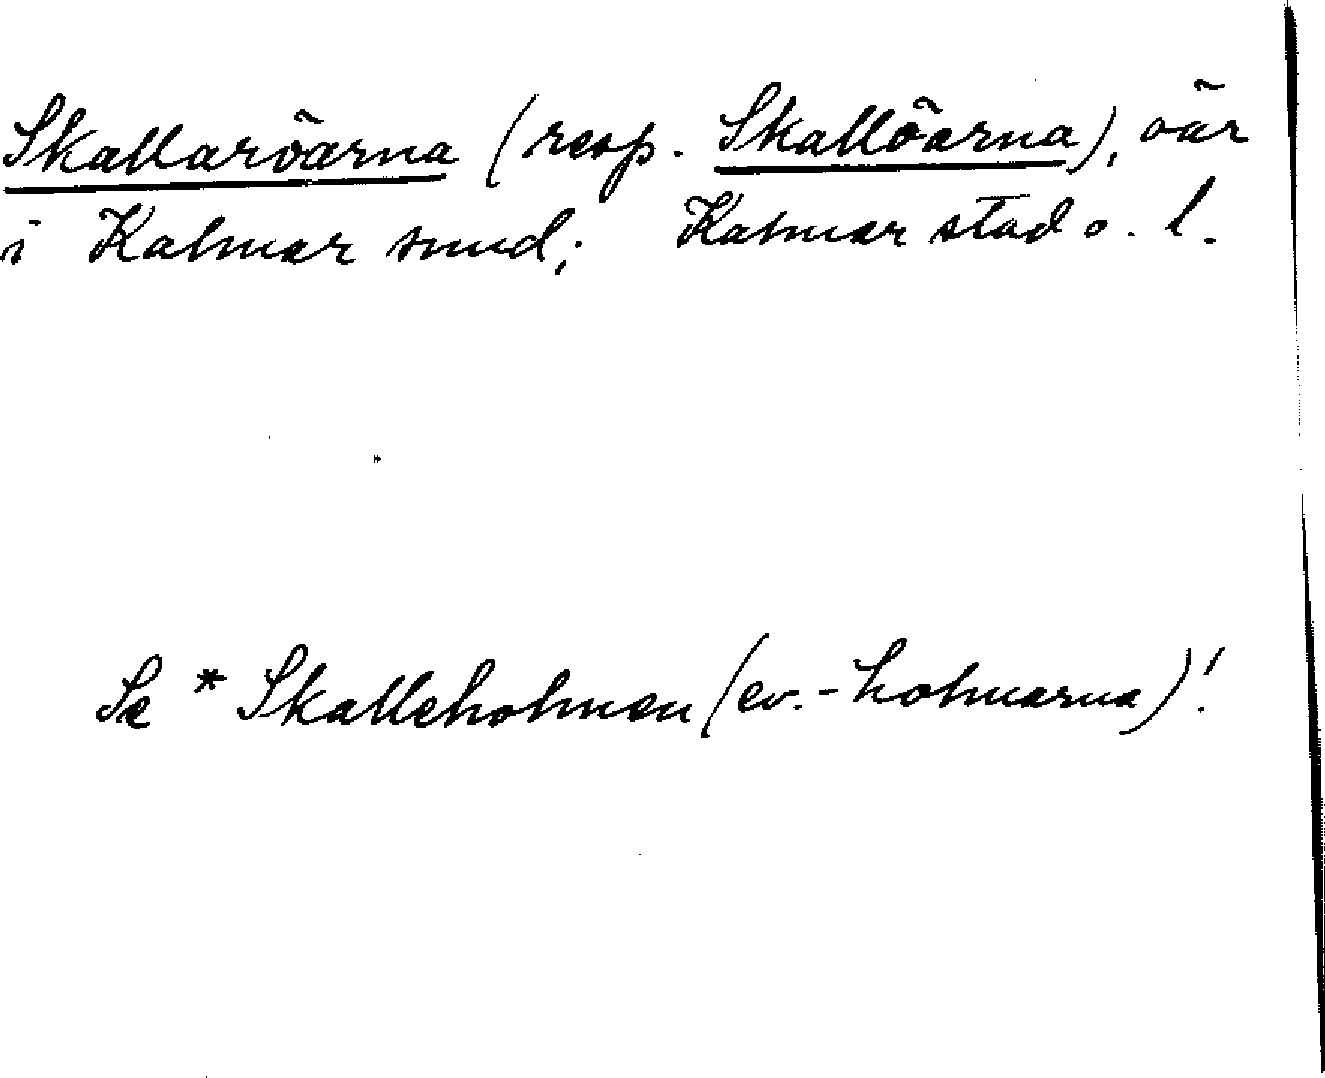 Skallaröarna (resp. Skallöarna), öar
i Kalmar sund; Kalmar stad o. l.
Se *Skalleholmen (ev. -holmarna)!